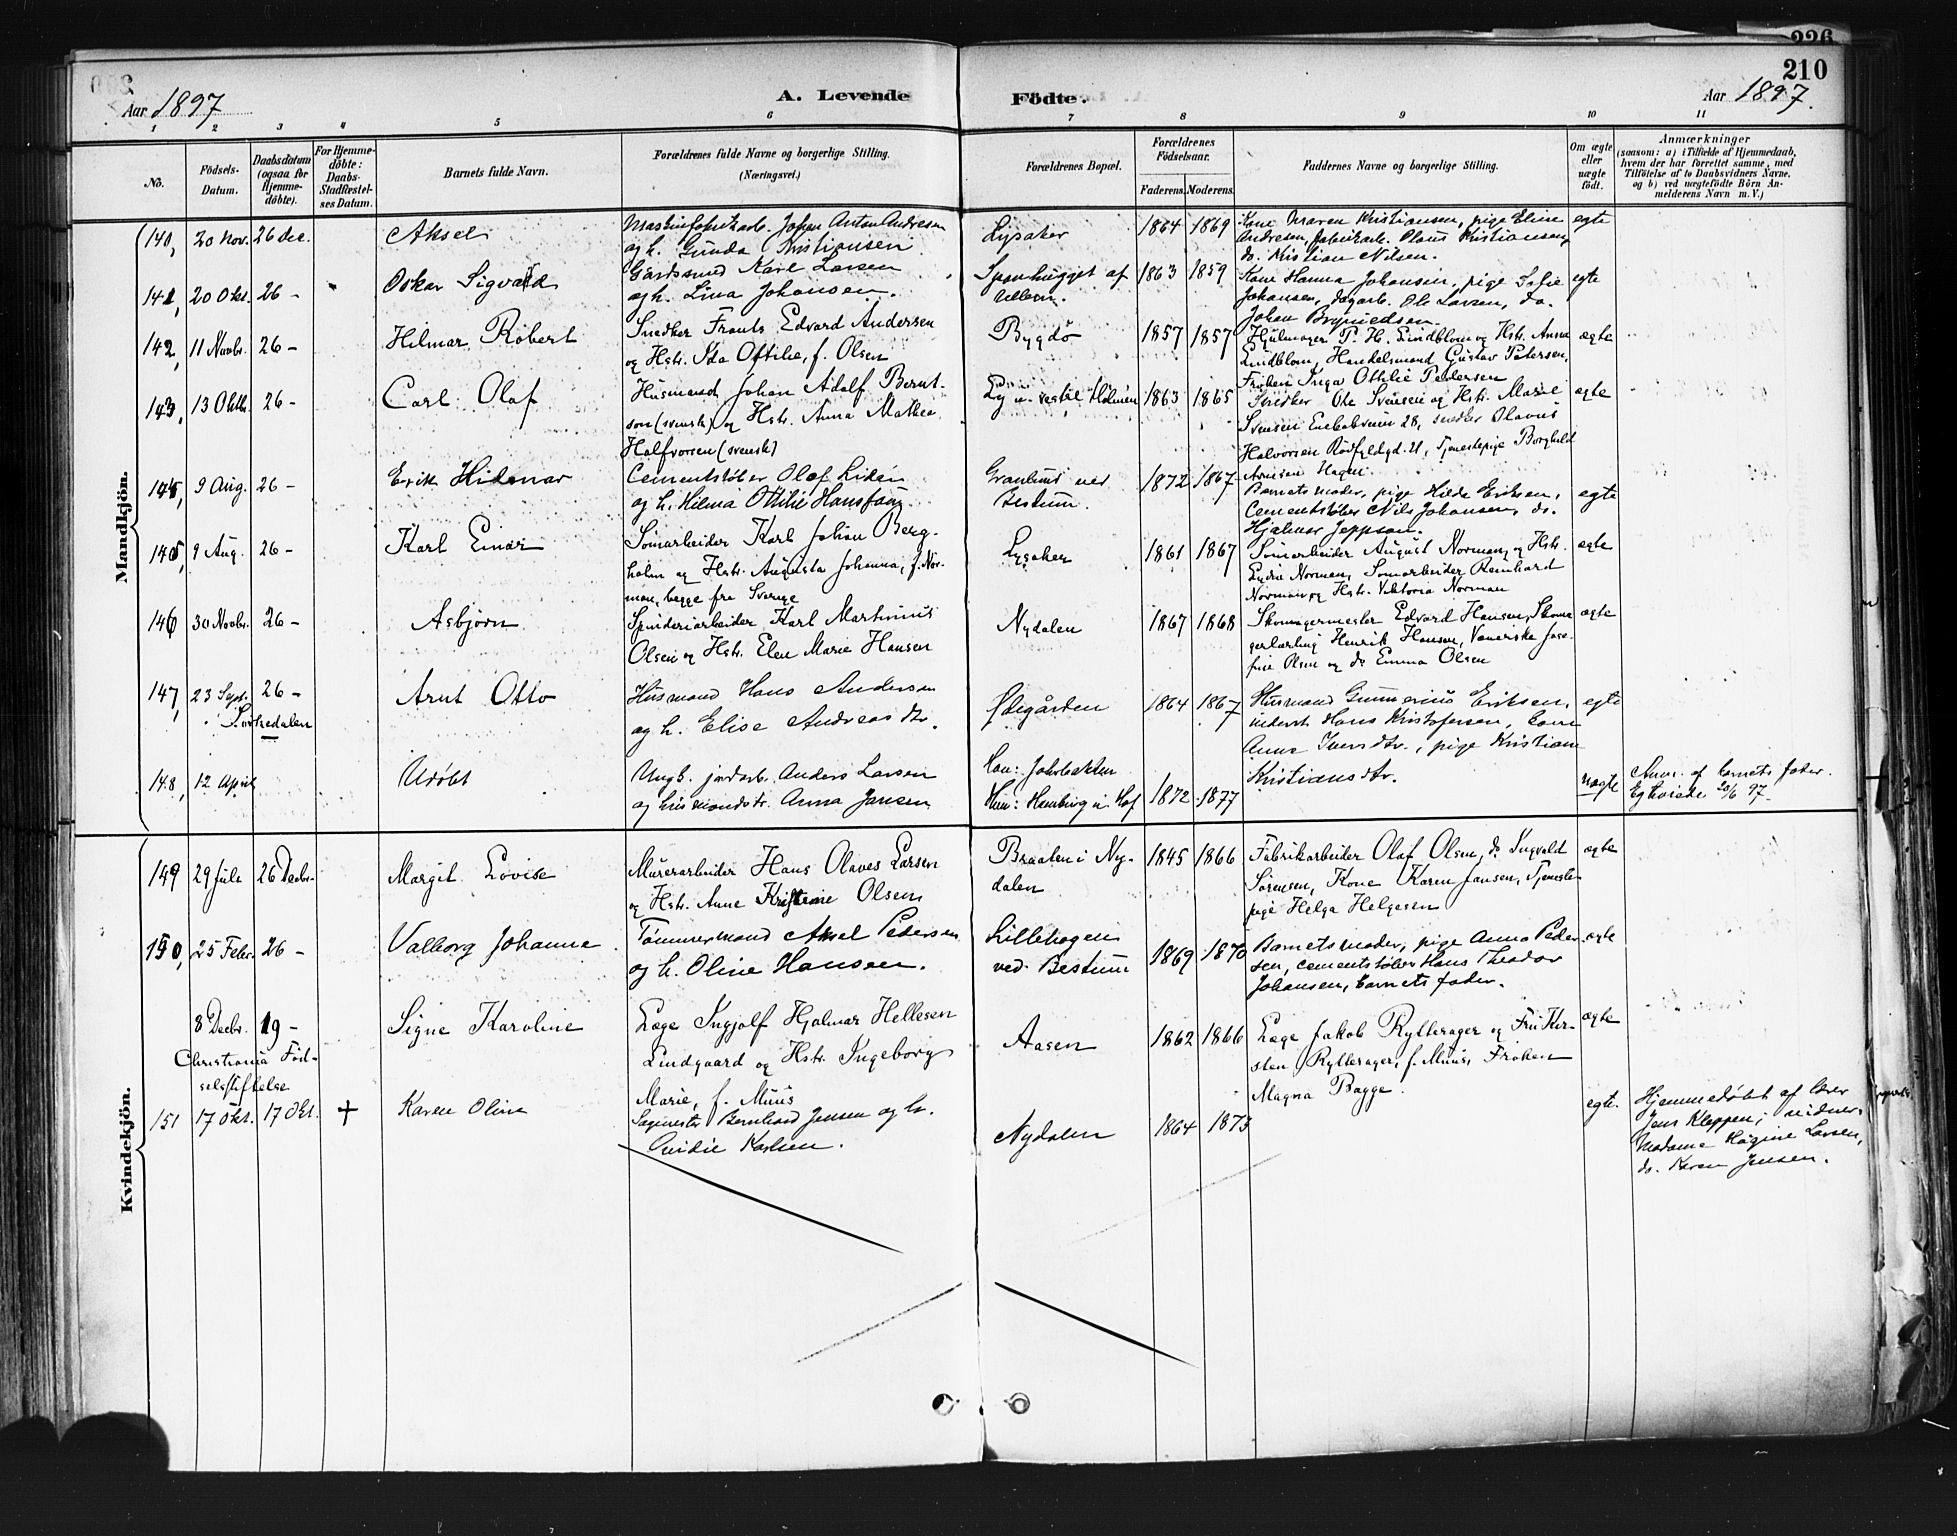 226
210
Aar 1897
A. Levende Födte.
Aar 1897.
1 2 3 4 5 6 7 8 9 10 11
No.
Födsels-Datum.
Daabsdatum (ogsaa for Hjemmedöbte).
For Hjemmedöbte: Daabs-Stadfæstelses Datum.
Barnets fulde Navn.
Forældrenes fulde Navne og borgerlige Stilling. (Næringsvei.)
Forældrenes Bopæl.
Forældrenes Födselsaar.
Faderens. Moderens.
Faddernes Navne og borgerlige Stilling.
Om ægte eller uægte födt.
Anmærkninger
(saasom: a) i Tilfælde af Hjemmedaab, hvem der har forrettet samme, med Tilföielse af to Daabsvidners Navne. og b) ved uægtefödte Börn Anmelderens Navn m. V.)
Mandkjön.
140, 20 Nov. 26 Dec.
Aksel
Maskinfabrikarb. Johan Anton Andresen
og h. Gunda Kristiansen
Lysaker
1864 1869
Kone Maren Kristiansen, pige Eline
Andresen, fabrikarb. Olaus Kristiansen,
do. Kristian Nilsen.
egte
141, 20 Okt. 26 -
Oskar Sigvald
Gårdsmed Karl Larsen
og h. Lina Johansen.
af
1863 1859
Kone Hanna Johansen, pige Sofie
Johansen, dagarb. Ole Larsen, do.
Johan
egte
142, 11 Novbr. 26 -
Hilmar Robert
Snedker Frants Edvard Andersen
og Hstr. Ida Ottilie, f. Olsen
Bygdö
1857 1857
Hjulmager P. H. Lindblom og Hstr. Anna
Lindblom, Handelsmand Gustav Pedersen,
Fröken Inga Othilie Pedersen
ægte
143, 13 Oktbr. 26 -
Carl Olaf
Husmand Johan Adolf Bernt-
son (svensk) og Hstr. Anna Mathea
Halfvorsen (svensk)
vestre Holmen
1863 1865
Snedker Ole Svensen og Hstr. Marie
Svensen Enebakveien 28, snedker Olavus
Halvorsen Rödfyldgd. 21, Tjenestepige Borghild
Arnesen Hagen.
ægte
145, 9 Aug. 26 -
Erik Hidmar
Cementstöber Olaf Liden
og h. Hilma Ottilie Hansfang
Granlund ved
Bestum.
1872 1867
Barnets moder, pige Hilda Eriksen,
Cementstöber Nils Johansen, do.
Hjalmar Jeppson.
egte
145, 9 Aug. 26 -
Karl Einar
Tomtarbeider Karl Johan Berg-
holm og Hstr. Augusta Johanna, f. Nor-
man, begge fra Sverige
Lysaker
1861 1867
August Norman og Hstr.
Norman, Reinhard
Norman og Hstr. Viktoria Norman
ægte
146 30 Novbr. 26 -
Asbjörn
Spinderiarbeider Karl Martinius
Olsen og Hstr. Elen Marie Hansen
Nydalen
1867 1868
Skomagermester Edvard Hansen, Skoma-
gerlærling Henrik Hansen, Væverske Jose-
fine Olsen og do Emma Olsen
ægte
147, 23 Sept. 26 -
Sørkedalen
Arnt Otto
Husmand Hans Andersen
og h. Elise Andreasdtr.
Ødegården
1864 1867
Husmand Gunnerius Eriksen,
inderst Hans Kristofersen, kone
Anne Iversdtr., pige Kristiane
Kristiansdtr.
egte
148, 12 April
Udöbt
Ungk. jordarb. Anders Larsen
og husmandsdtr. Anna Jansen
Han:
Hun: i Hof
1872 1877
uægte
Anm. af barnets fader.
20/6 97
Kvindekjön.
149 29 Juli 26 Decbr.
Margit Lovise
Murerarbeider Hans Olaves Larsen
og Hstr. Anne Kristine Olsen
Braaten i Ny-
dalen
1845 1866
Fabrikarbeider Olaf Olsen, do Ingvald
Sörensen, Kone Karen Jansen, Tjeneste-
pige Helga Helgesen
ægte
150, 25 Febr. 26 -
Valborg Johanne
Tömmermand Aksel Pedersen
og h. Oline Hansen.
Lillehagen
ved Bestum
1869 1870
Barnets moder, pige Anna Peder-
sen, cementstöber Hans Theodor
Johansen, barnets fader.
egte
8 Decbr. 19 -
Christiania Föd-
selsstiftelse
Signe Karoline
Læge Ingjolf Hjalmar Hellesen
Lindgaard og Hstr. Ingeborg
Marie, f. Muus
Aasen
1862 1866
Læge Jakob Rytterager og Fru Kir-
sten Rytterager, f. Muus, Fröken
Magna Bagge.
ægte
151 17 Okt. 17 Okt. +
Karen Oline
Sagmester Bernhard Jensen og h.
Karlsen.
Nydalen
1864 1873
egte.
Hjemmedöbt af lærer
Jens Kleppen; vidner:
Madame Hagine Larsen,
do. Karen Jensen.